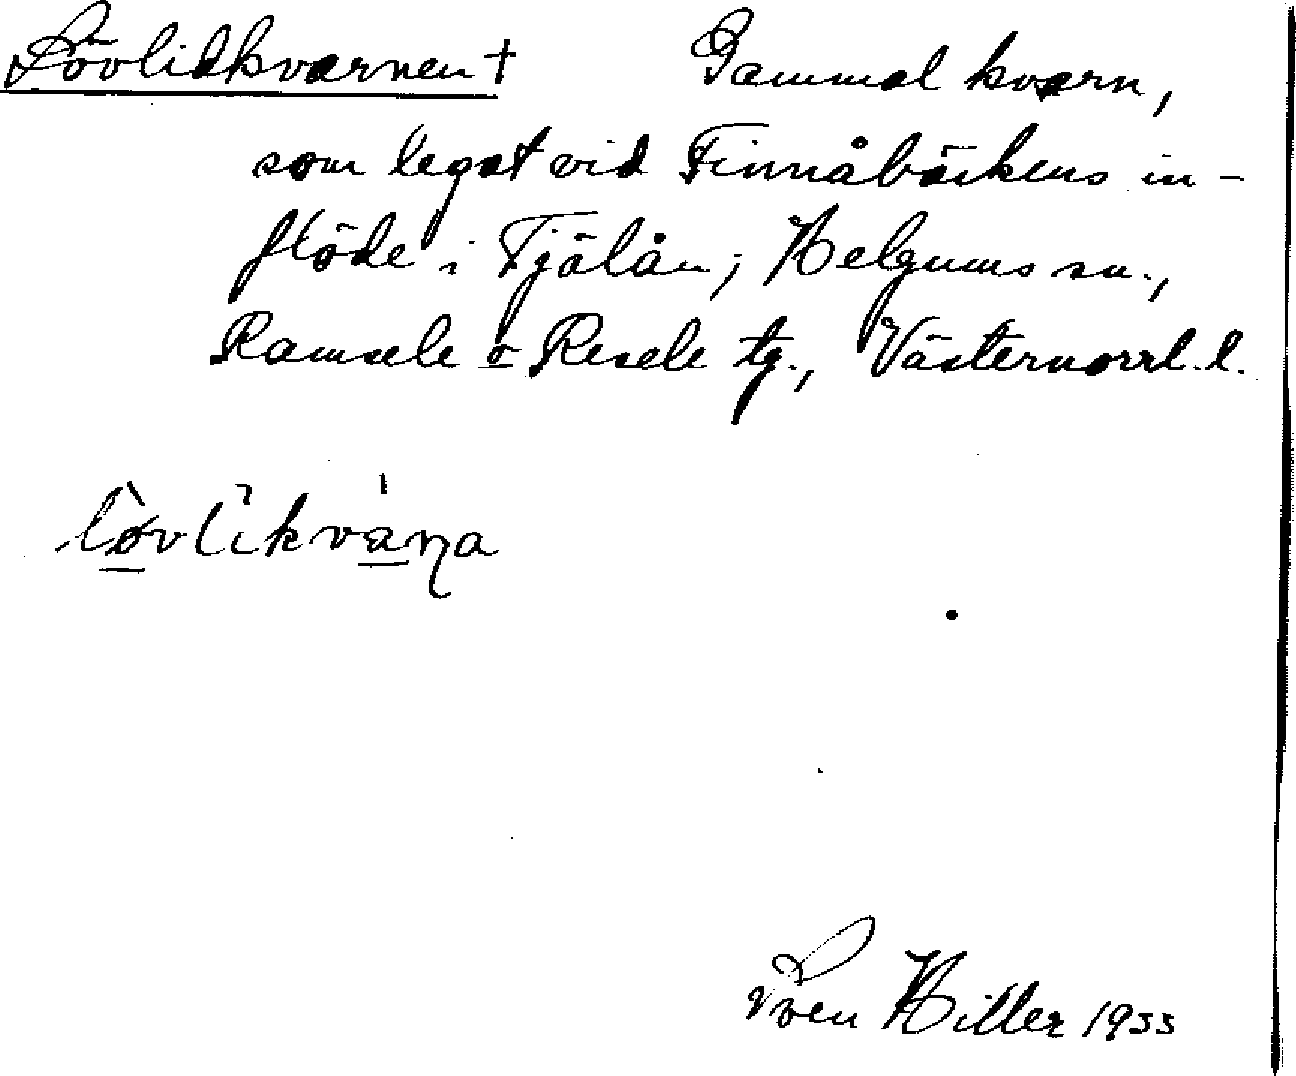 Lövlidkvarnen † Gammal kvarn,
som legat vid Finnåbäckens in-
flöde i Fjälån, Helgums sn.,
Ramsele o Resele tg., Västernorrl. l.
Sven Hiller 1933